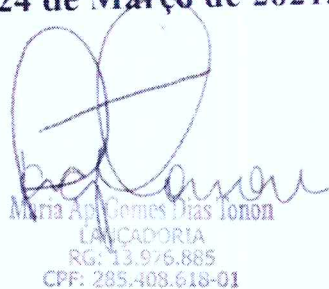 24 de Março de 2021.
Maria Ap. Gomes Dias Tonon
LANÇADORIA
RG: 13.976.885
CPF: 285.408.618-01